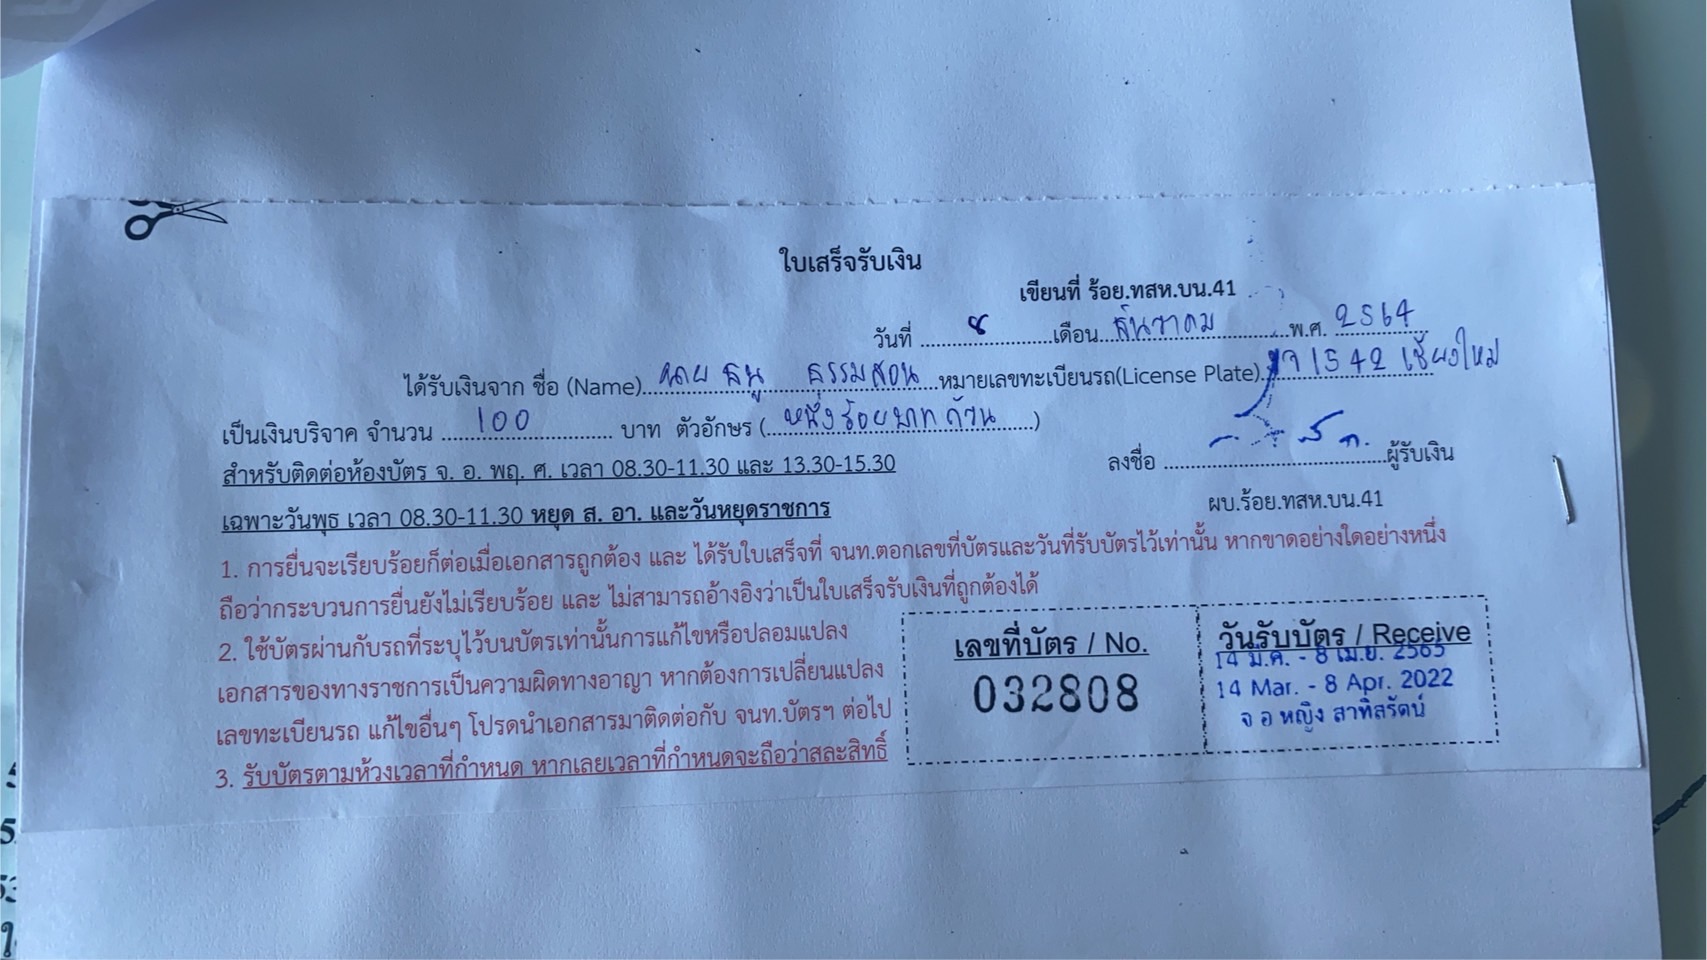 ใบเสร็จรับเงิน
เขียนที่ ร้อย.ทสห.บน.41
วันที่ ........ 8 ........ เดือน ธันวาคม ........ พ.ศ. 2564
ได้รับเงินจาก ชื่อ (Name) นาย ธนู ธรรมสอน หมายเลขทะเบียนรถ(License Plate) 1542 เชียงใหม่
เป็นเงินบริจาค จำนวน 100 บาท ตัวอักษร (หนึ่งร้อยบาทถ้วน)
สำหรับติดต่อห้องบัตร จ. อ. พฤ. ศ. เวลา 08.30-11.30 และ 13.30-15.30
ลงชื่อ ........ ผู้รับเงิน
เฉพาะวันพุธ เวลา 08.30-11.30 หยุด ส. อา. และวันหยุดราชการ
ผบ.ร้อย.ทสห.บน.41
1. การยื่นจะเรียบร้อยก็ต่อเมื่อเอกสารถูกต้อง และ ได้รับใบเสร็จที่ จนท.ตอกเลขที่บัตรและวันที่รับบัตรไว้เท่านั้น หากขาดอย่างใดอย่างหนึ่ง
ถือว่ากระบวนการยื่นยังไม่เรียบร้อย และ ไม่สามารถอ้างอิงว่าเป็นใบเสร็จรับเงินที่ถูกต้องได้
2. ใช้บัตรผ่านกับรถที่ระบุไว้บนบัตรเท่านั้นการแก้ไขหรือปลอมแปลง
เอกสารของทางราชการเป็นความผิดทางอาญา หากต้องการเปลี่ยนแปลง
เลขทะเบียนรถ แก้ไขอื่นๆ โปรดนำเอกสารมาติดต่อกับ จนท.บัตรฯ ต่อไป
3. รับบัตรตามห้วงเวลาที่กำหนด หากเลยเวลาที่กำหนดจะถือว่าสละสิทธิ์
เลขที่บัตร / No.
032808
วันรับบัตร / Receive
14 มี.ค. - 8 เม.ย. 2565
14 Mar. - 8 Apr. 2022
จ อ หญิง สาทิสรัตน์